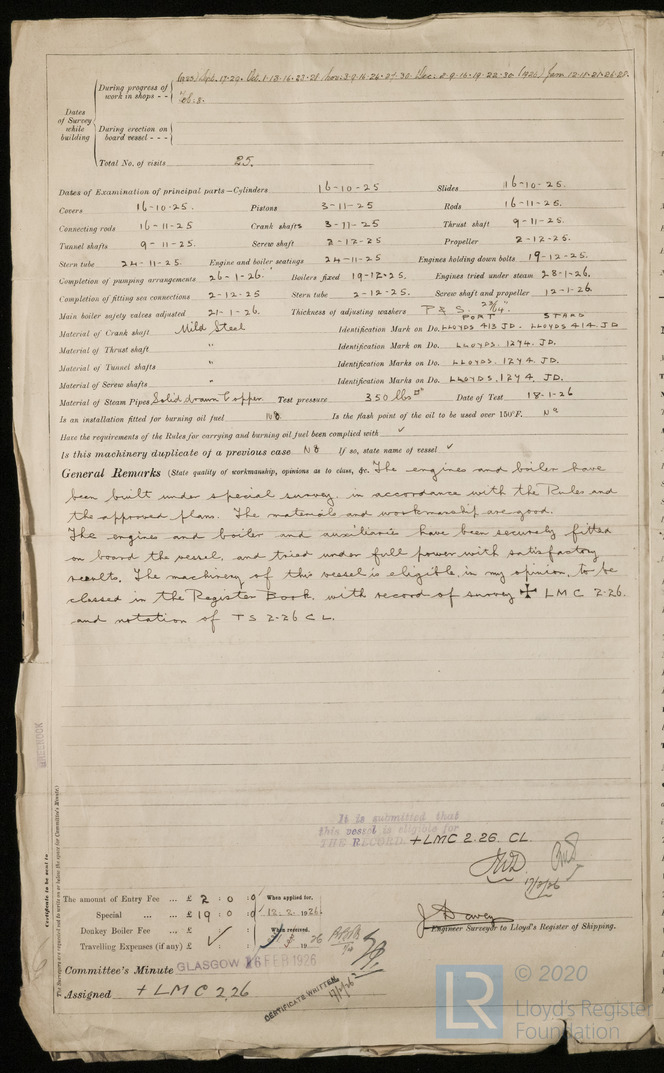 During progress of work in shops - - (1925) Sep. 17. 20. Oct. 1. 13. 16. 23. 28 Nov. 3. 9. 16. 26. 27. 30. Dec. 2. 9. 16. 19. 22. 30. (1926) Jan 12. 18. 21. 26. 28.
Feb: 8.
Dates of Survey while building
During erection on board vessel - - -
Total No. of visits 25.
Dates of Examination of principal parts—Cylinders 16-10-25 Slides 16-10-25.
Covers 16-10-25. Pistons 3-11-25 Rods 16-11-25.
Connecting rods 16-11-25 Crank shafts 3-11-25 Thrust shaft 9-11-25.
Tunnel shafts 9-11-25. Screw shaft 2-12-25 Propeller 2-12-25.
Stern tube 24-11-25. Engine and boiler seatings 24-11-25 Engines holding down bolts 19-12-25.
Completion of pumping arrangements 26-1-26. Boilers fixed 19-12-25. Engines tried under steam 28-1-26.
Completion of fitting sea connections 2-12-25 Stern tube 2-12-25. Screw shaft and propeller 12-1-26
Main boiler safety valves adjusted 21-1-26. Thickness of adjusting washers P & S. 23/64".
PORT STARD
Material of Crank shaft Mild Steel Identification Mark on Do. LLOYDS 413 JD. LLOYDS 414 JD
Material of Thrust shaft " Identification Mark on Do. LLOYDS. 1274. JD.
Material of Tunnel shafts " Identification Marks on Do. LLOYDS. 1274. JD.
Material of Screw shafts " Identification Marks on Do. LLOYDS. 1274 JD.
Material of Steam Pipes Solid drawn Copper Test pressure 350 lbs □" Date of Test 18-1-26
Is an installation fitted for burning oil fuel No Is the flash point of the oil to be used over 150°F. No
Have the requirements of the Rules for carrying and burning oil fuel been complied with ✓
Is this machinery duplicate of a previous case No If so, state name of vessel ✓
General Remarks (State quality of workmanship, opinions as to class, &c. The engines and boiler have
been built under special survey, in accordance with the Rules and
the approved plans. The materials and workmanship are good.
The engines and boiler and auxiliaries have been securely fitted
on board the vessel, and tried under full power with satisfactory
results. The machinery of this vessel is eligible, in my opinion, to be
classed in the Register Book, with record of survey ✠ LMC 2.26.
and notation of TS 2.26 CL.
It is submitted that
this vessel is eligible for
THE RECORD. + LMC 2.26. CL
17/2/26
The amount of Entry Fee ... £ 2 : 0 : 0 When applied for,
Special ... ... £ 19 : 0 : 0 12.2.1926
Donkey Boiler Fee ... £ : : When received,
Travelling Expenses (if any) £ : : 19 26
J Davey
Engineer Surveyor to Lloyd's Register of Shipping.
Committee's Minute GLASGOW 16 FEB 1926
Assigned + LMC 2.26
CERTIFICATE WRITTEN
Certificate to be sent to
GREENOCK
The Surveyors are requested not to write on or below the space for Committee's Minute.
© 2020
LR Lloyd's Register
Foundation